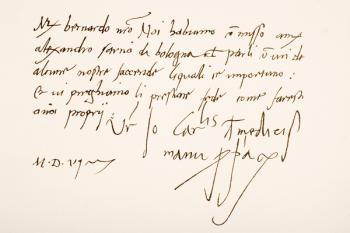 bernardo nro Noi habiamo
alexandro da bologna et parli de
alcune nostre faccende lequali ce importano :
vi preghiamo li prestare fede come faresti
a noi proprij Jo Car lis medicis
manu ppa
M. D.